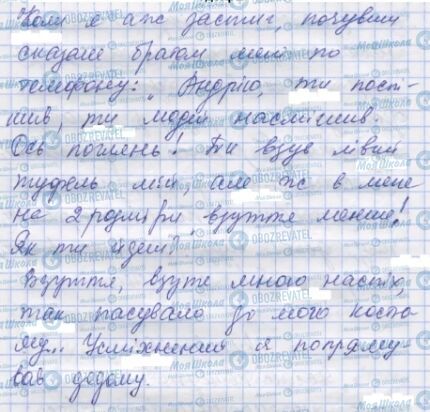 Коли я аж застиг, почувши
сказане братом мені по
телефону: „Андрію, ти поспі-
шив, ти людей насмішив.
Ось поглянь! Ти взув лівий
туфель мій, але ж в мене
на 2 розміри взуття менше!
Як ти йдеш?
Взуття, взуте мною наспіх,
так пасувало до мого костю
му... Усміхнений я попряму
вав додому.